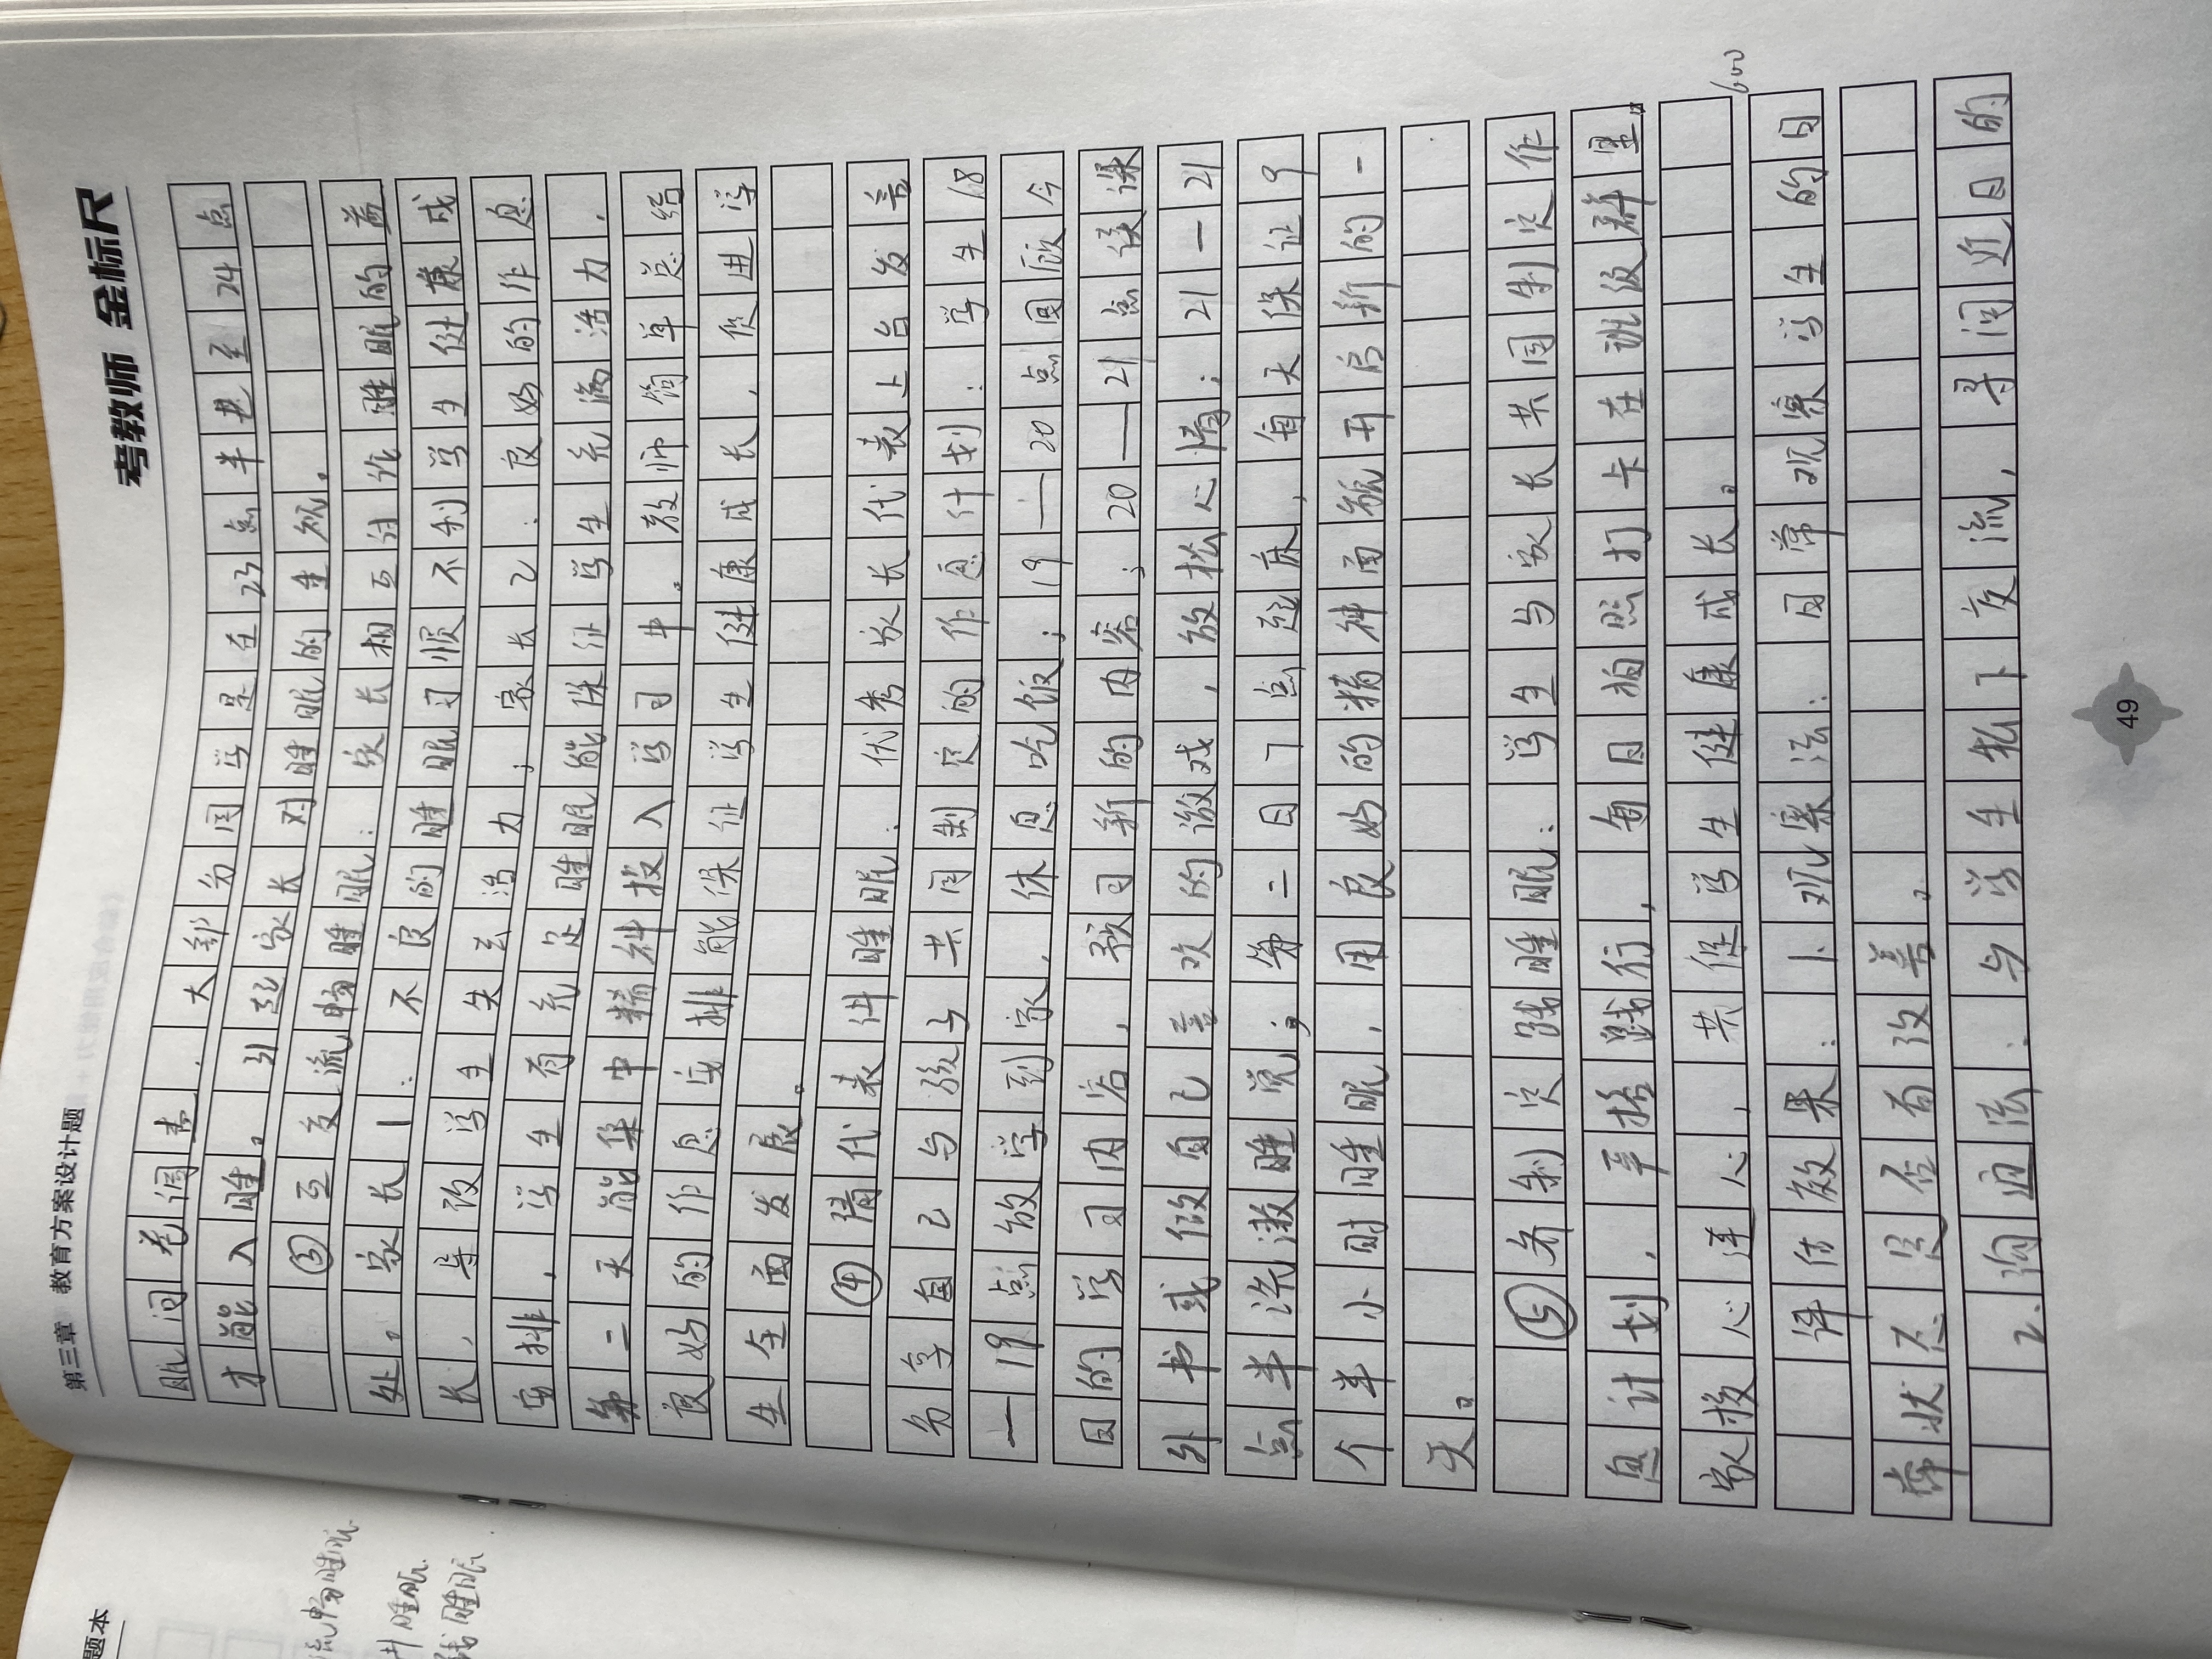 考教师 金标尺
第三章 教育方案设计题
眠问卷调查，大部分同学是在23点半甚至24点
才能入睡。引起家长对睡眠的重视。
③互交流畅睡眠：家长相互讨论睡眠的益
处。家长1：不良的睡眠习惯不利学生健康成
长，导致学生失去活力；家长2：良好的作息
安排，学生有充足睡眠能保证学生充满活力，
第二天能集中精神投入学习中。教师简单总结
良好的作息安排能保证学生健康成长，促进学
生全面发展。
④请代表件睡眠：优秀家长代表上台发言
分享自己与孩子共同制定的作息计划：学生18
—19点放学到家，休息吃饭；19—20点回顾今
日的学习内容，预习新的内容；20—21点读课
外书或做自己喜欢的游戏，放松心情；21—21
点半洗漱睡觉；第二日7点起床，每天保证9
个半小时睡眠，用良好的精神面貌开启新的一
天。
⑤齐制定践睡眠：学生与家长共同制定作
息计划，严格践行，每日拍照打卡在班级群里。
家校心连心，共促学生健康成长。
600
评估效果：1.观察法：日常观察学生的日
常状态是否有改善。
2.沟通法：与学生私下交流，寻问近日的
49
题本
流畅睡眠
件睡眠
践睡眠